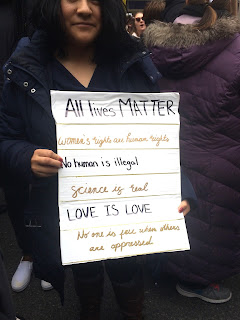 All lives MATTER
WOMEN's rights are human rights
No human is illegal
Science is real
LOVE IS LOVE
No one is free when others
are oppressed